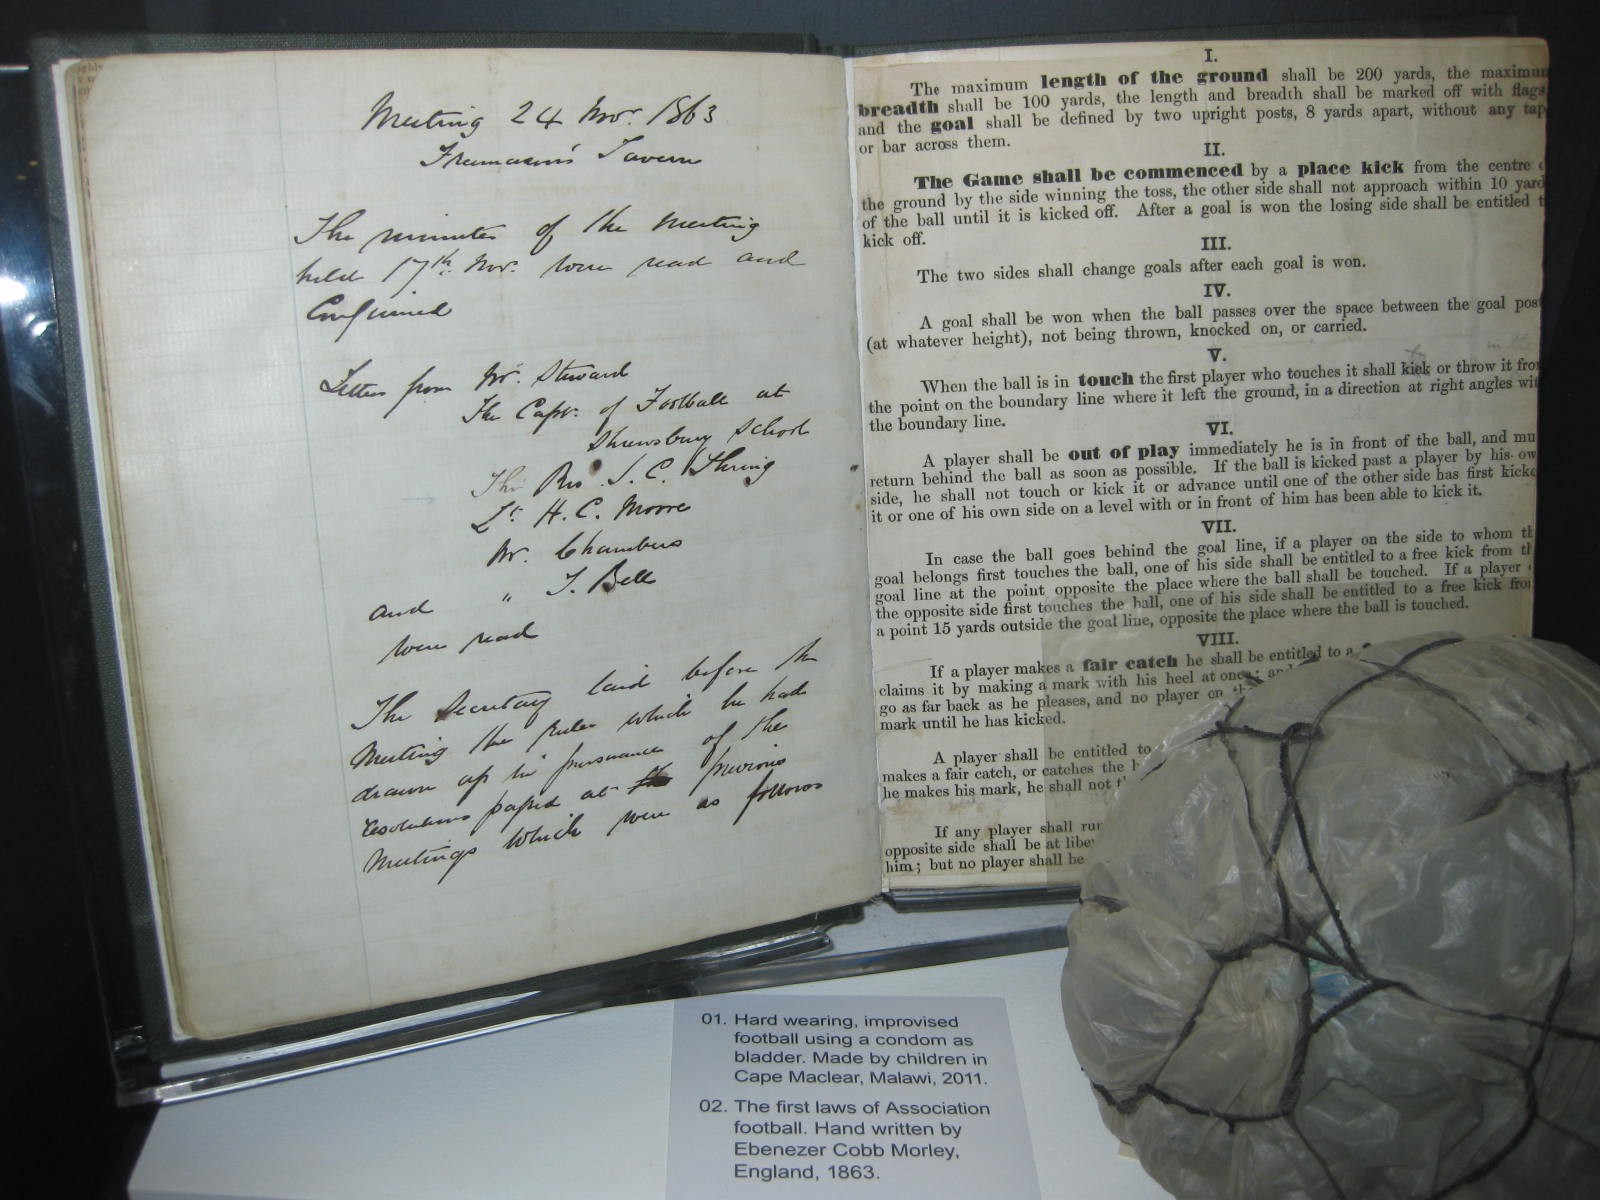 Meeting 24 Nov. 1863
Freemason's Tavern
The minutes of the Meeting
held 17th. Nov. were read and
Confirmed
Letters from Mr. Steward
The Capt. of Football at
Shrewsbury School
The Rev J. C. Thring
Lt. H. C. Moore
Mr. Chambers
and " J. Bell
were read
The Secretary laid before the
Meeting the rules which he had
drawn up in pursuance of the
resolutions passed at the previous
Meetings which were as follows
I.
The maximum length of the ground shall be 200 yards, the maximum
breadth shall be 100 yards, the length and breadth shall be marked off with flags
and the goal shall be defined by two upright posts, 8 yards apart, without any tap
or bar across them.
II.
The Game shall be commenced by a place kick from the centre
the ground by the side winning the toss, the other side shall not approach within 10 yard
of the ball until it is kicked off. After a goal is won the losing side shall be entitled t
kick off.
III.
The two sides shall change goals after each goal is won.
IV.
A goal shall be won when the ball passes over the space between the goal post
(at whatever height), not being thrown, knocked on, or carried.
V.
When the ball is in touch the first player who touches it shall kick or throw it from
the point on the boundary line where it left the ground, in a direction at right angles wit
the boundary line.
VI.
A player shall be out of play immediately he is in front of the ball, and mu
return behind the ball as soon as possible. If the ball is kicked past a player by his ow
side, he shall not touch or kick it or advance until one of the other side has first kicke
it or one of his own side on a level with or in front of him has been able to kick it.
VII.
In case the ball goes behind the goal line, if a player on the side to whom th
goal belongs first touches the ball, one of his side shall be entitled to a free kick from th
goal line at the point opposite the place where the ball shall be touched. If a player
the opposite side first touches the ball, one of his side shall be entitled to a free kick from
a point 15 yards outside the goal line, opposite the place where the ball is touched.
VIII.
If a player makes a fair catch he shall be entitled to a
claims it by making a mark with his heel at once; and
go as far back as he pleases, and no player on
mark until he has kicked.
A player shall be entitled to
makes a fair catch, or catches the
he makes his mark, he shall not
If any player shall run
opposite side shall be at liber
him; but no player shall be
01. Hard wearing, improvised
football using a condom as
bladder. Made by children in
Cape Maclear, Malawi, 2011.
02. The first laws of Association
football. Hand written by
Ebenezer Cobb Morley,
England, 1863.